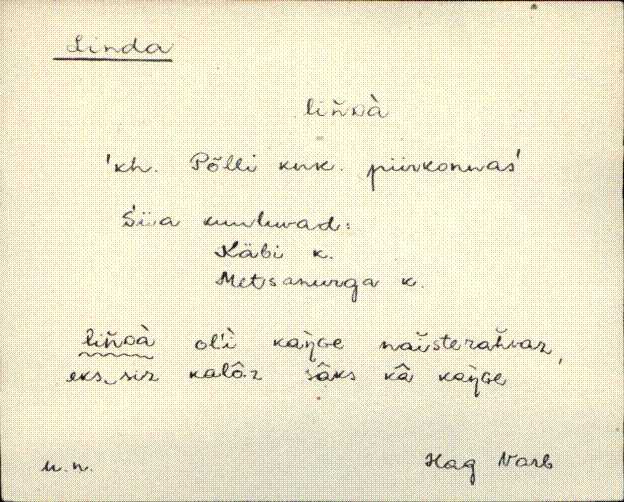 Linda
liňᴅà
'kh. Põlli knk. piirkonnas'
Siia kuuluvad:
Käbi k.
Metsanurga k.
liňᴅà ol'ì kaŋ̀ɢe naĭsterahvaz,
eks‿siz kalê̬z sâks kâ kaŋ̀ɢe
u.n. Hag Varb